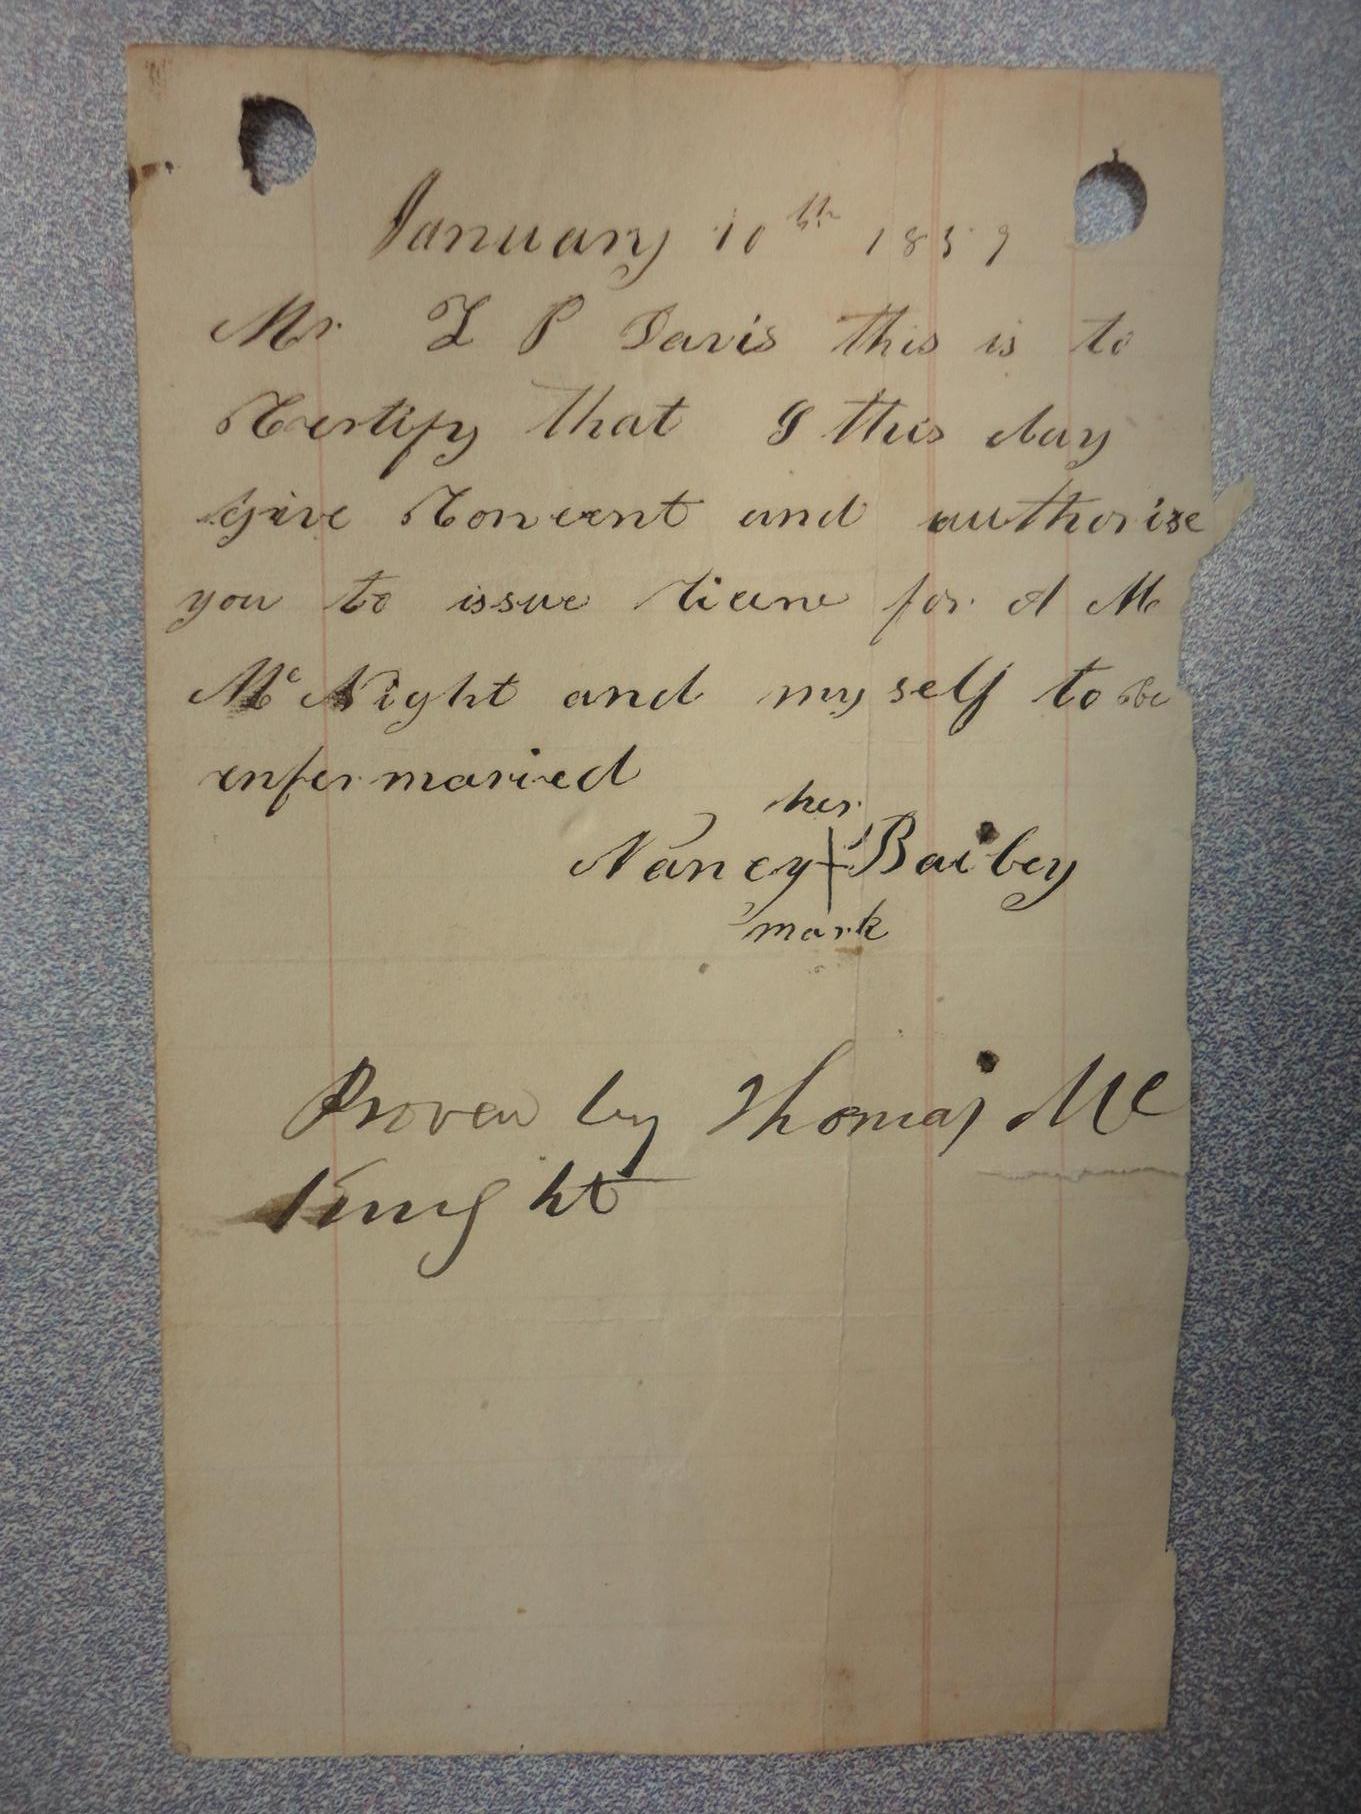 January 10th 1859
Mr. L P Davis this is to
Certify that I this day
Give Concent and authorise
you to issue licens for A M
McNight and my self to be
enfermaried
her
Nancy + Bailey
mark
Proven by Thomas Mc
Knight